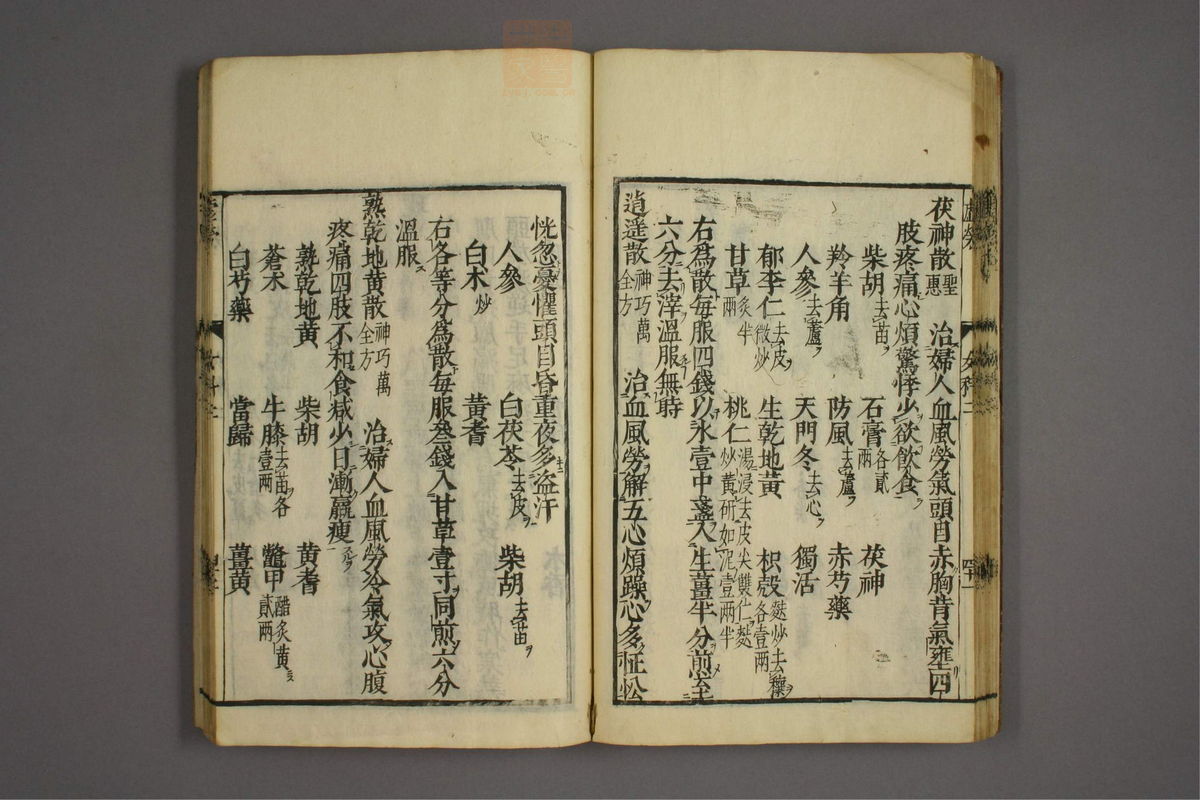 茯神散聖惠　治婦人血風勞氣頭目赤胸背氣壅四
肢疼痛心煩驚悸少欲飲食
柴胡去苗　石膏各貳兩　茯神
羚羊角　防風去蘆　赤芍藥
人參去蘆　天門冬去心　獨活
郁李仁去皮微炒　生乾地黃　枳殼麩炒去穰各壹兩
甘草炙半兩　桃仁湯浸去皮尖雙仁麩炒黃研如泥壹兩半
右爲散每服四錢以水壹中盞入生薑半分煎至
六分去滓溫服無時
逍遥散神巧萬全方　治血風勞解五心煩躁心多怔忪
恍忽憂懼頭目昏重夜多盜汗
人參　白茯苓去皮　柴胡去苗
白朮炒　黃耆
右各等分爲散每服叄錢入甘草壹寸同煎六分
溫服
熟乾地黃散神巧萬全方　治婦人血風勞冷氣攻心腹
疼痛四肢不和食减少日漸羸瘦
熟乾地黃　柴胡　黃耆
蒼朮　牛膝去苗各壹兩　鼈甲醋炙黃貳兩
白芍藥　當歸　薑黃